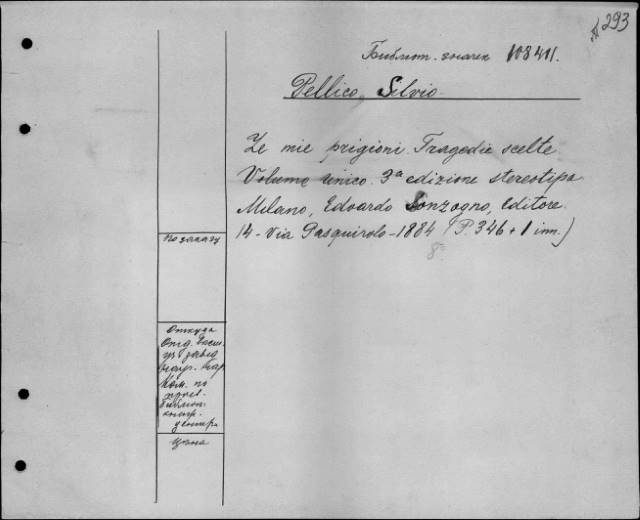 293
Библиот. значек 108411.
Pellico, Silvio.
Le mie prigioni. Tragedie scelte.
Volume unico. 3ª edizione stereotipa
Milano, Edoardo Sonzogno, Editore.
14 - Via Pasquirolo - 1884 (P. 346 + 1 inn.)
8°
По заказу
Откуда
Отд.
Ком. по
Цена